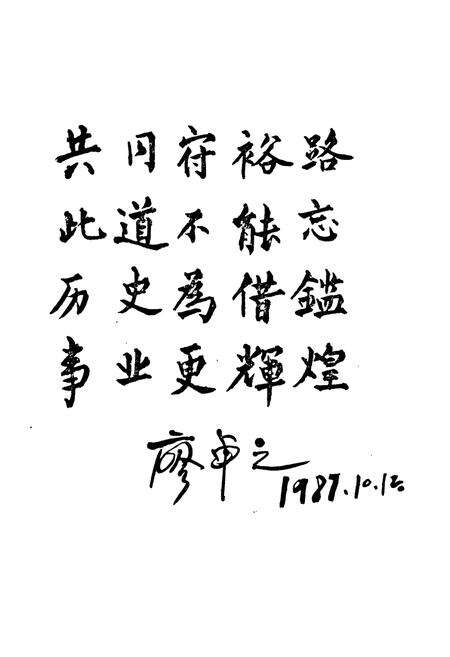 共同富裕路
此道不能忘
历史為借鑑
事业更輝煌
廖卓之
1987.10.12